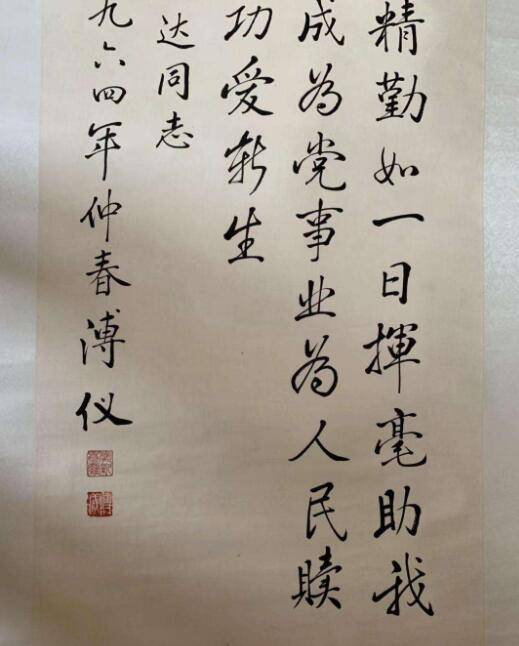 精勤如一日揮毫助我
成为党事业为人民赎
功爱新生
达同志
九六四年仲春溥仪